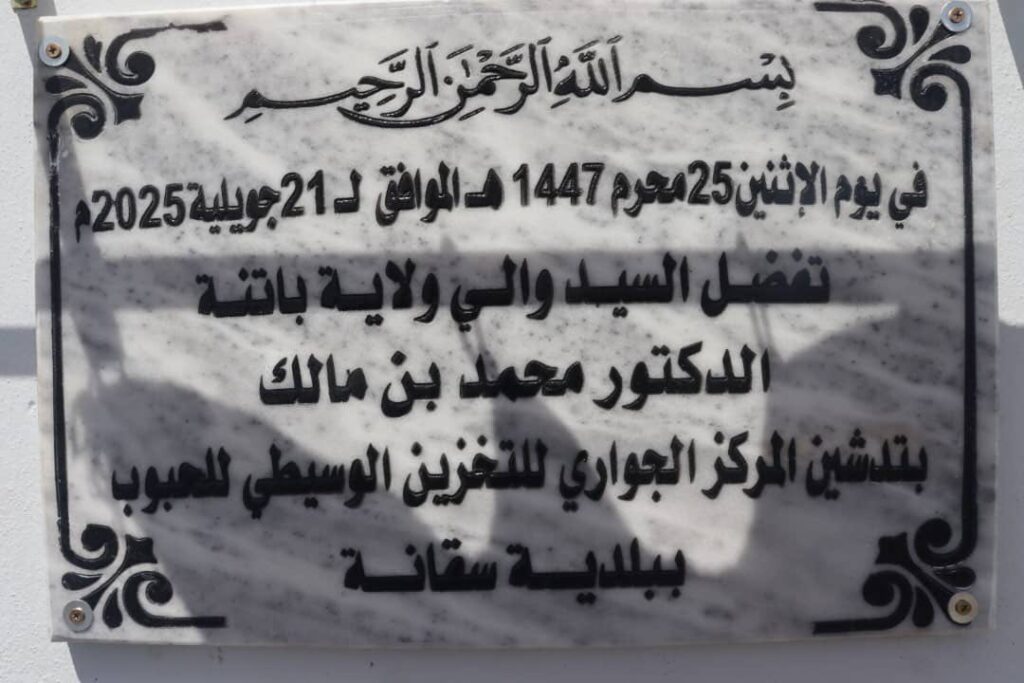 بِسْمِ اللَّهِ الرَّحْمَٰنِ الرَّحِيمِ
في يوم الإثنين 25 محرم 1447 هـ الموافق لـ 21 جويلية 2025م
تفضل السيد والي ولاية باتنة
الدكتور محمد بن مالك
بتدشين المركز الجواري للتخزين الوسيطي للحبوب
ببلدية سقانة